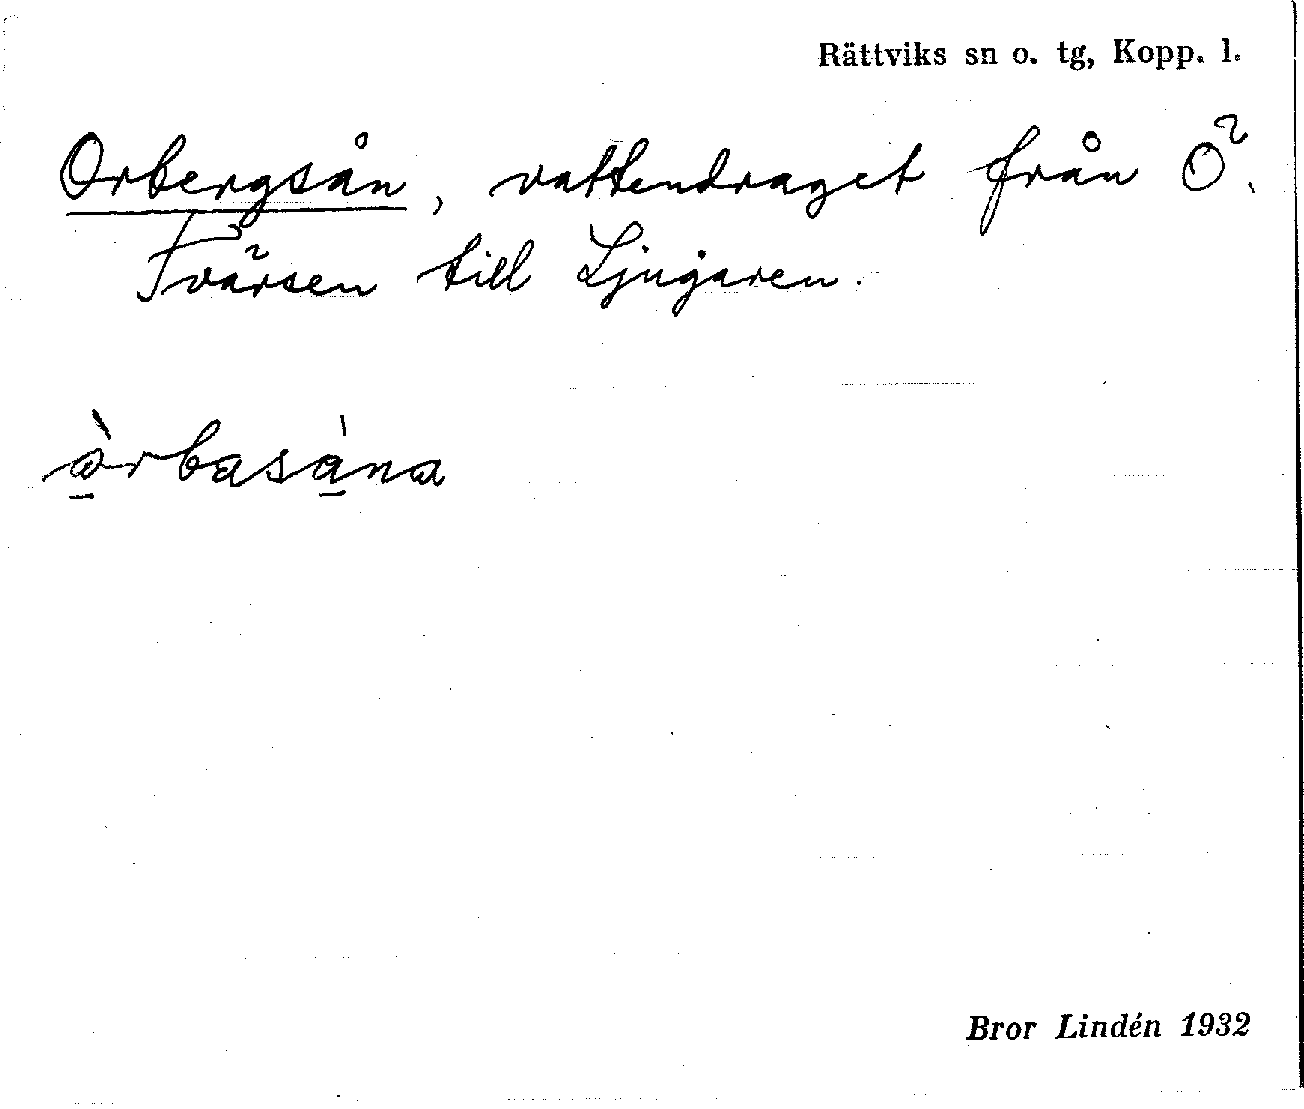 Rättviks sn o. tg, Kopp. l.
Orbergsån, vattendraget från Ö.
Tvärsen till Ljugaren.
à̠rbasa̠̍na
Bror Lindén 1932